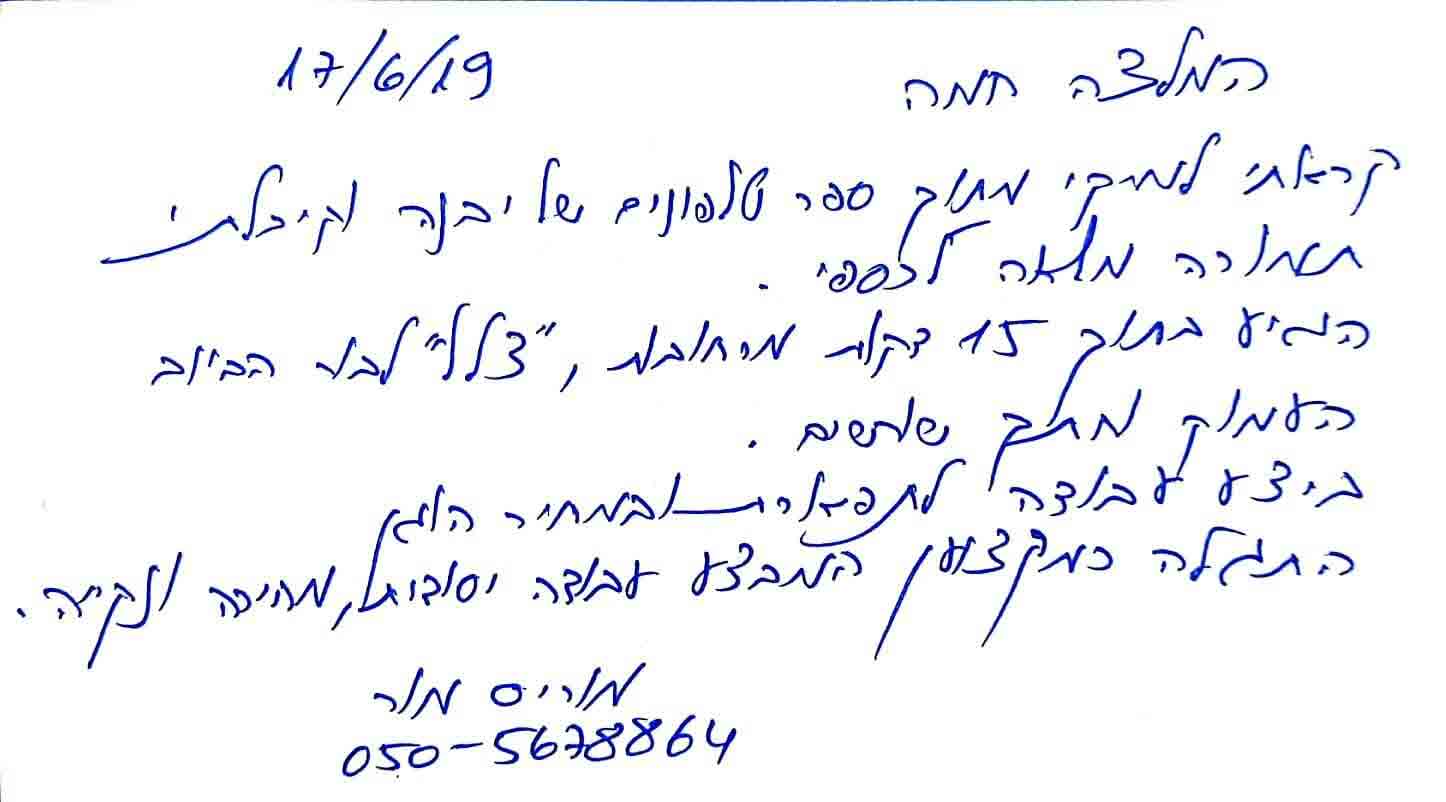 המלצה חמה 17/6/19
קראתי למיקי מתוך ספר טלפונים של יבנה וקיבלתי
תמורה מלאה לכספי.
הגיע בתוך 15 דקות מרחובות, "צלל" לבור הביוב
העמוק מתוך שלושים.
ביצע עבודה לתפארת ובמחיר הוגן
התגלה כמקצוען המבצע עבודה יסודית, מהירה ונקייה.
מוריס מור
050-5678864